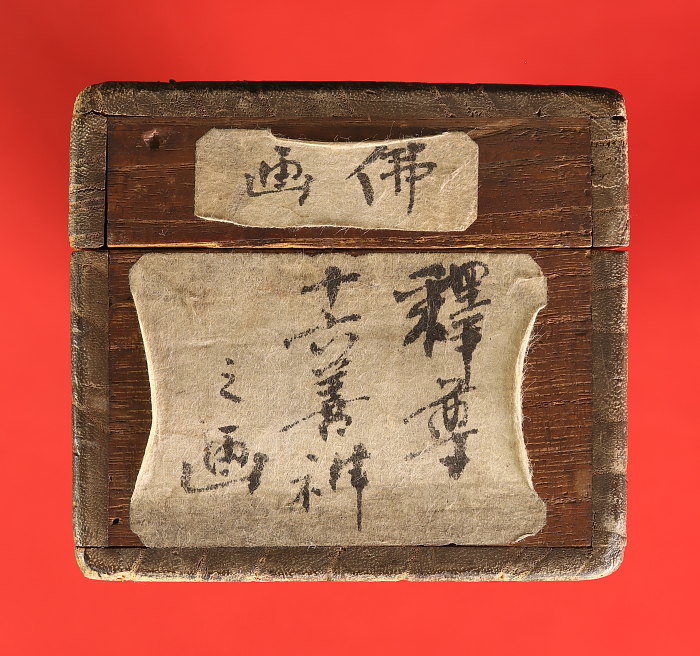 佛画
釋尊
十六善神
之画